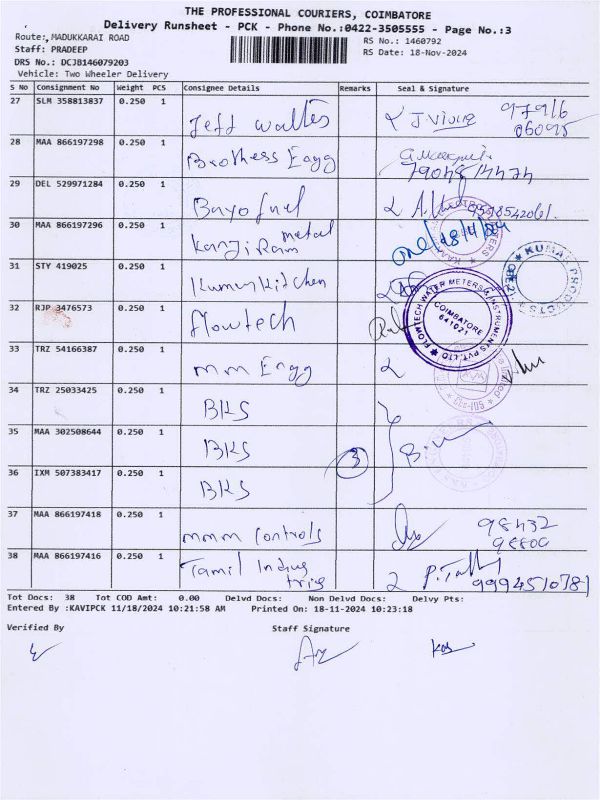 THE PROFESSIONAL COURIERS, COIMBATORE
Delivery Runsheet - PCK - Phone No.:0422-3505555 - Page No.:3
Route:, MADUKKARAI ROAD
RS No.: 1460792
Staff: PRADEEP
RS Date: 18-Nov-2024
DRS No.: DCJB146079203
Vehicle: Two Wheeler Delivery
S No Consignment No Weight PCS Consignee Details Remarks Seal & Signature
27 SLM 358813837 0.250 1 Jeff Walters J. 97916
06095
28 MAA 866197298 0.250 1 Brothess Engg
29 DEL 529971284 0.250 1 Bayofuel
30 MAA 866197296 0.250 1 Kanji Ram metal 18/11/24
31 STY 419025 0.250 1 Kumur Kitchen
KUMAR PRODUCTS
32 RJP 3476573 0.250 1 flowtech
FLOWTECH WATER METERS & INSTRUMENTS PVT. LTD
COIMBATORE
641021
33 TRZ 54166387 0.250 1 mm Engg
34 TRZ 25033425 0.250 1 BKS
35 MAA 302508644 0.250 1 BKS 3
36 IXM 507383417 0.250 1 BKS
37 MAA 866197418 0.250 1 mmm controls 98432
98800
38 MAA 866197416 0.250 1 Tamil Indus
tries 9994510781
Tot Docs: 38 Tot COD Amt: 0.00 Delvd Docs: Non Delvd Docs: Delvy Pts:
Entered By :KAVIPCK 11/18/2024 10:21:58 AM Printed On: 18-11-2024 10:23:18
Verified By Staff Signature